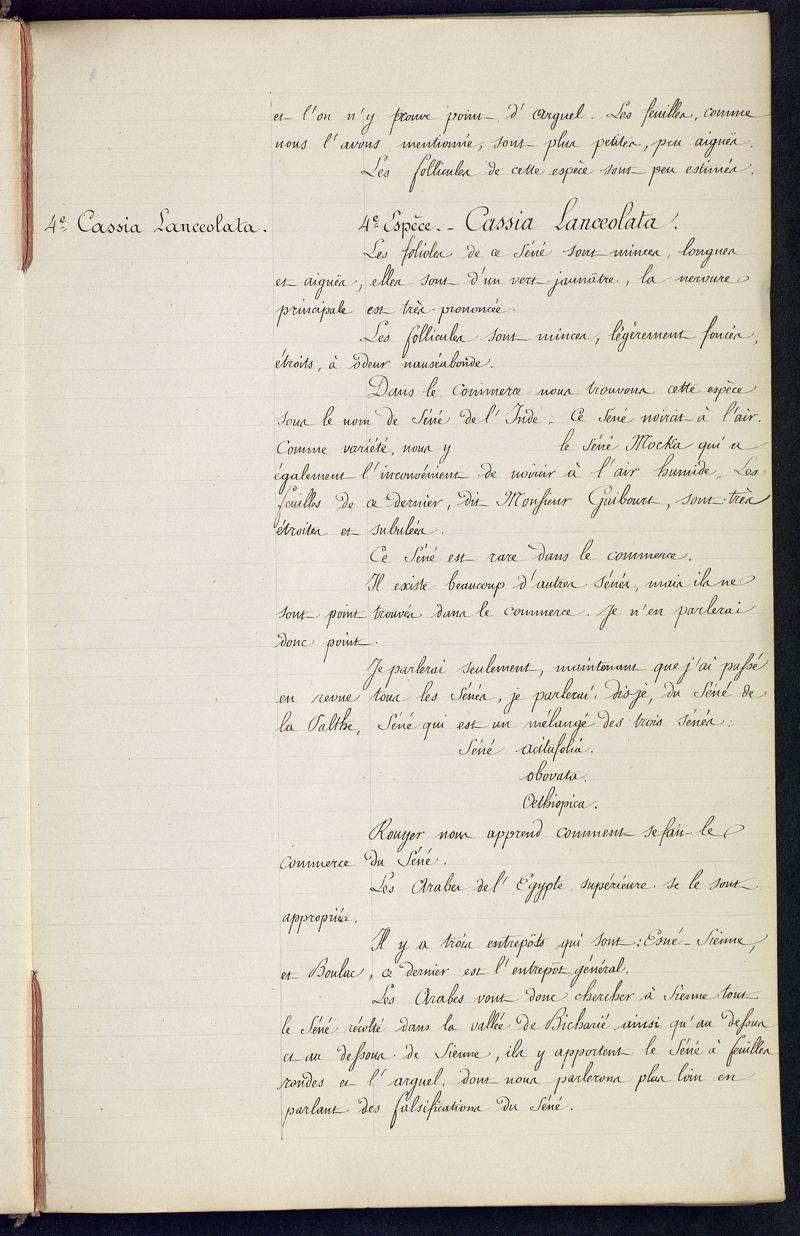 et l'on n'y trouve point d'arguel. Les feuilles, comme
nous l'avons mentionné, sont plus petites, peu aiguës.
Les follicules de cette espèce sont peu estimés.
4e Cassia Lanceolata.
4e Espèce. - Cassia Lanceolata.
Les folioles de ce Séné sont minces, longues
et aiguës, elles sont d'un vert jaunâtre, la nervure
principale est très-prononcée.
Les follicules sont minces, légèrement foncés,
étroits, à odeur nauséabonde.
Dans le commerce nous trouvons cette espèce
sous le nom de Séné de l'Inde. Ce Séné noircit à l'air.
Comme variété, nous y le Séné Mocka qui a
également l'inconvénient de noircir à l'air humide. Les
feuilles de ce dernier, dit Monsieur Guibourt, sont très
étroites et subulées.
Ce Séné est rare dans le commerce.
Il existe beaucoup d'autres sénés, mais ils ne
sont point trouvés dans le commerce. Je n'en parlerai
donc point.
Je parlerai seulement, maintenant que j'ai passé
en revue tous les Sénés, je parlerai, dis-je, du Séné de
la Palthe, Séné qui est un mélange des trois sénés:
Séné acitufolia.
obovata.
Œthiopica.
Rouyer nous apprend comment se fait le
commerce du Séné.
Les Arabes de l'Egypte supérieure se le sont
appropriés.
Il y a trois entrepôts qui sont: Esné - Sienne,
et Boulac, ce dernier est l'entrepôt général.
Les Arabes vont donc chercher à Sienne tout
le Séné récolté dans la vallée de Bicharié ainsi qu'au dessus
et au dessous de Sienne, ils y apportent le Séné à feuilles
rondes et l'arguel, dont nous parlerons plus loin en
parlant des falsifications du Séné.